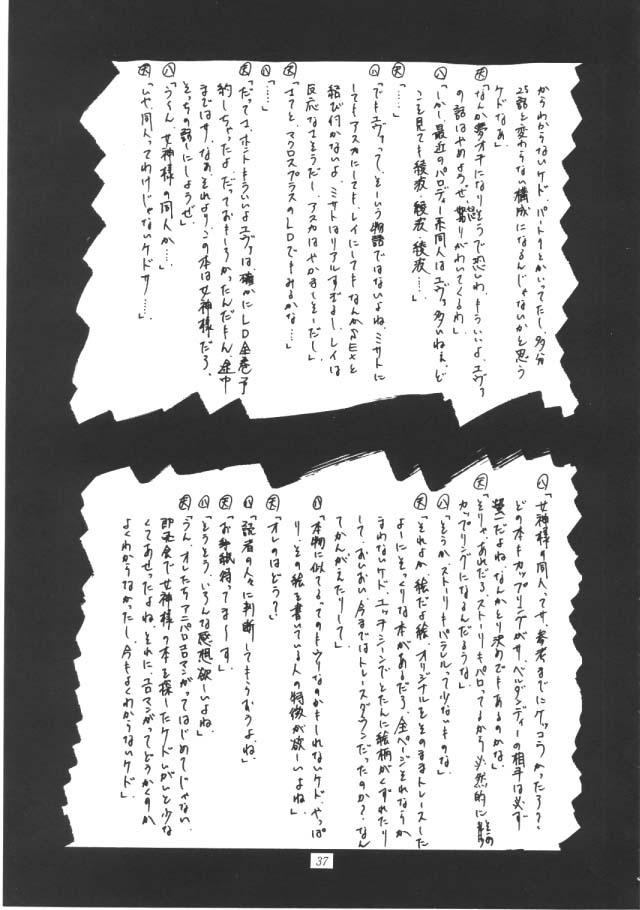 からわからないケド、パート1とかいってたし、多分
25話と変わらない構成になるんじゃないかと思う
ケドなあ」
天「なんか夢オチになりそうで恐いわ、もういいよ、エヴァ
の話はやめようぜ、怒りがわいてくるわ」
八「しかし最近のパロディー系同人はエヴァ多いねえ、ど
こを見ても綾波、綾波、綾波……」
天「……」
八「でもエヴァって、そーいう物語ではないよね、ミサトに
してもアスカにしても、レイにしてもなんかSEXと
結び付かないよ、ミサトはリアルすぎるし、レイは
反応なさそうだし、アスカはやかましそーだし」
天「さてと、マクロスプラスのLDでもみるかな…」
八「……」
天「だってさ、ホントもういいよエヴァは、確かにLD全巻予
約しちゃったよ、だっておもしろかったんだもん、途中
まではサ、なあ、それよりこの本は女神様だろ、
そっちの話にしようぜ」
八「う〜ん、女神様の同人か…」
天「いや、同人ってわけじゃないケドサ……」
八「女神様の同人ってサ、参考までにケッコうかったろ?、
どの本もカップリングがサ、ベルダンディーの相手は必ず
螢一だよね、なんかとり決めでもあるのかな」
天「そりゃあれだろ、ストーリもパロってるから必然的に
カップリングになるんだろうな」
八「そうか、ストーリもパラレルって少ないものな」
天「それよか絵だよ絵、オリジナルをそのままトレースした
よーにそっくりな本があるだろ、全ページそれならか
まわないケド、エッチシーンでとたんに絵柄がくずれたり
して、おいおい、今まではトレースダウンだったのか?、なん
てかんがえたりして」
八「本物に似てるってのもウリなのかもしれないケド、やっぱ
り、その絵を書いている人の特徴が欲ーいよね」
天「オレのはどう?」
八「読者の人々に判断してもらおうよね」
天「お手紙待ってま〜す」
八「そうそう、いろんな感想欲ーいよね」
天「うん、オレたちアニパロエロマンガってはじめてじゃない、
即売会で女神様の本を探したケドいがいと少な
くてあせったよね、それにエロマンガってどうかくのか
よくわからなかったし、今もよくわからないケド」
37